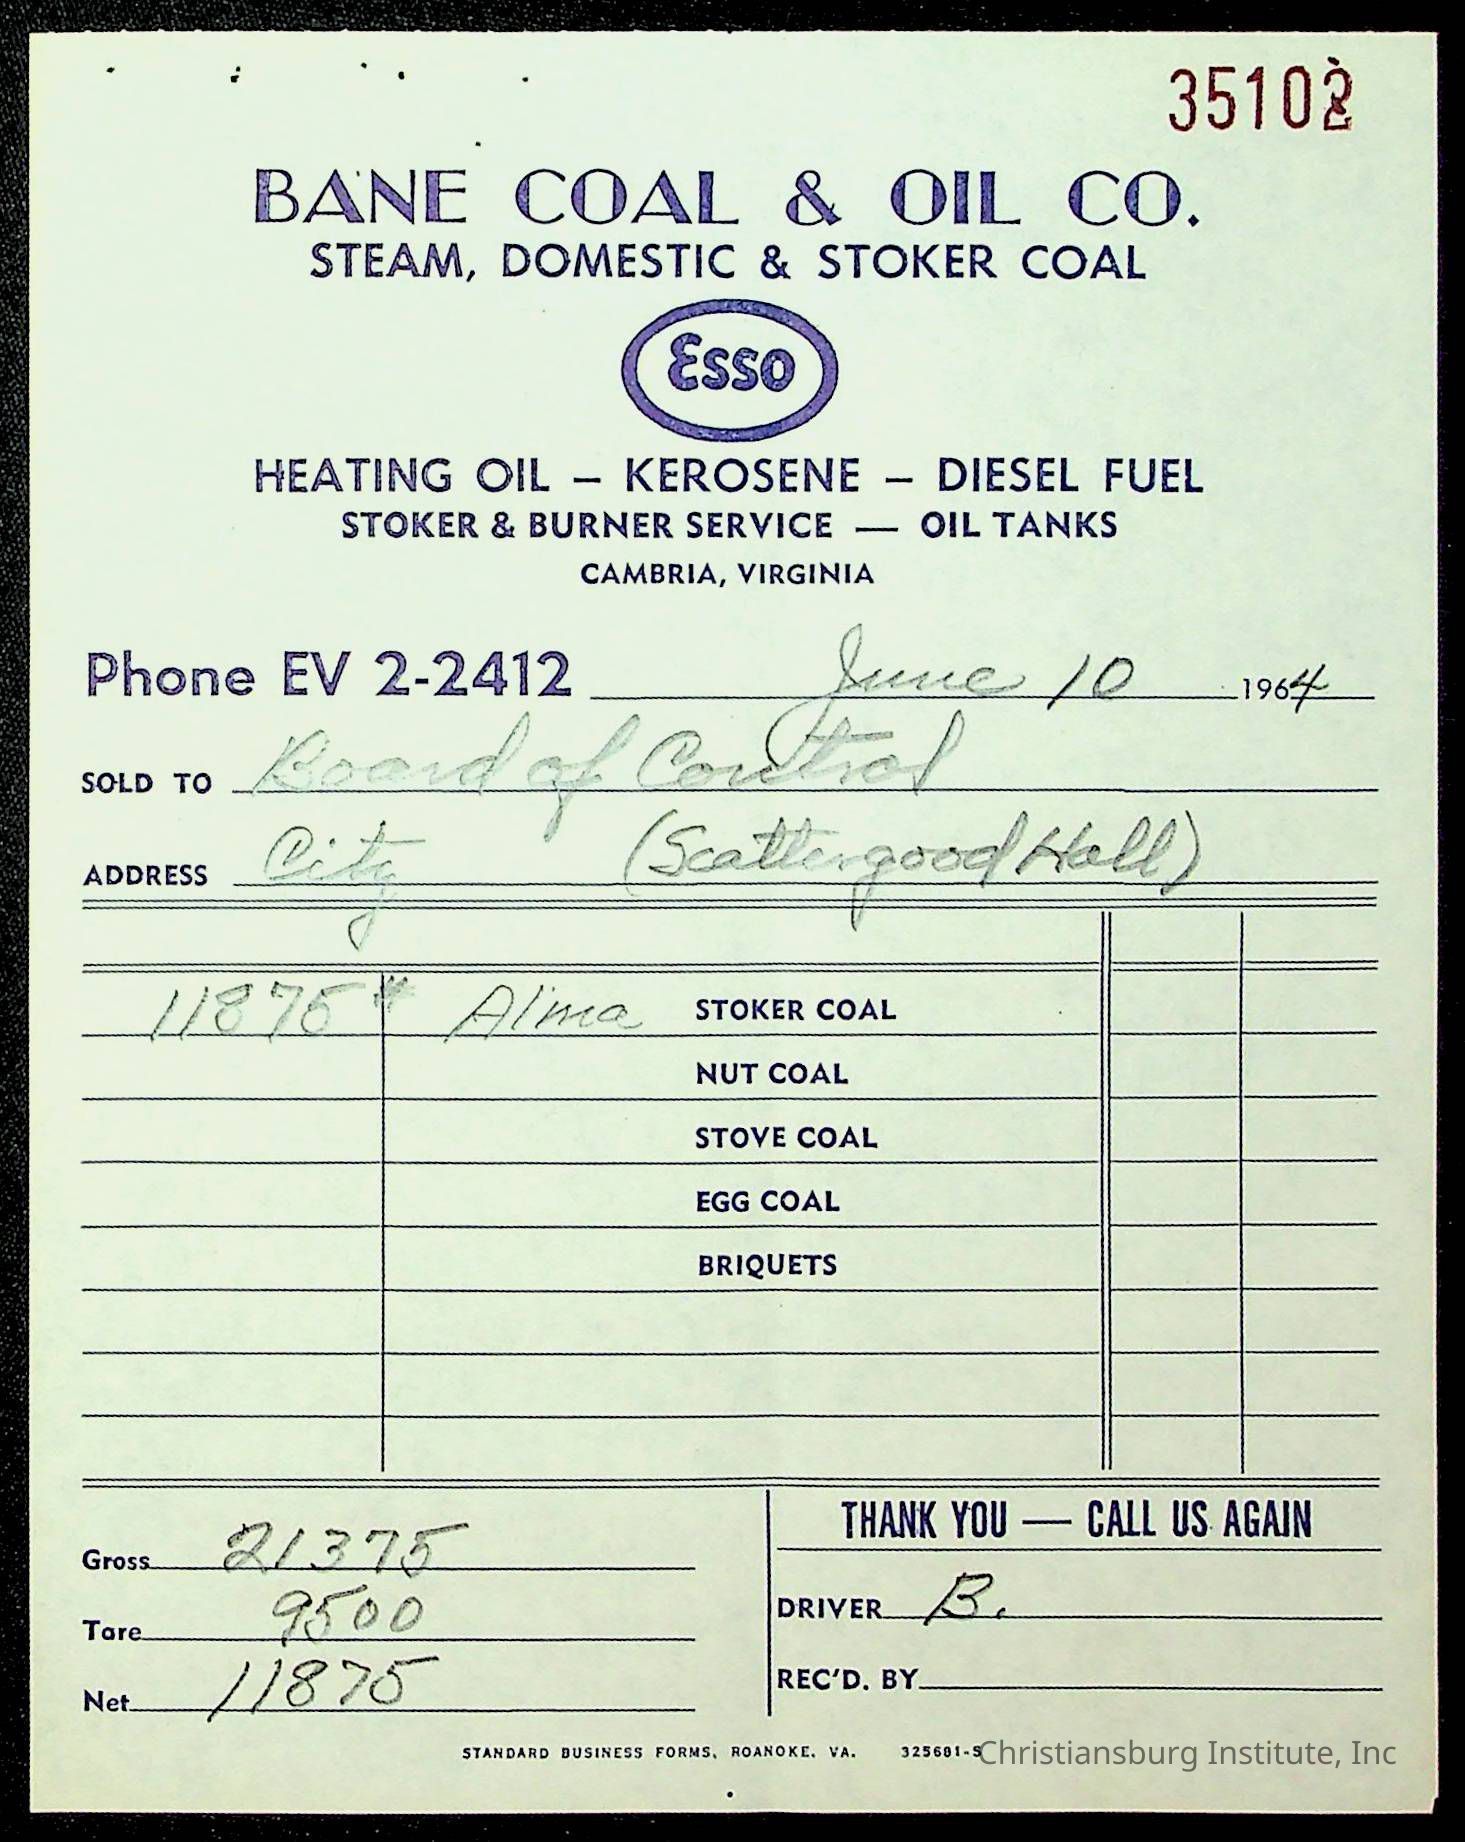 35102
BANE COAL & OIL CO.
STEAM, DOMESTIC & STOKER COAL
Esso
HEATING OIL – KEROSENE – DIESEL FUEL
STOKER & BURNER SERVICE — OIL TANKS
CAMBRIA, VIRGINIA
Phone EV 2-2412 June 10 1964
SOLD TO Board of Control
ADDRESS City (Scattergood Hall)
11875# Alma STOKER COAL
NUT COAL
STOVE COAL
EGG COAL
BRIQUETS
THANK YOU — CALL US AGAIN
Gross 21375
DRIVER B.
Tare 9500
REC'D. BY
Net 11875
STANDARD BUSINESS FORMS, ROANOKE, VA. 325681-S
Christiansburg Institute, Inc